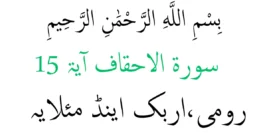 بِسْمِ اللَّهِ الرَّحْمَٰنِ الرَّحِيمِ
سورة الاحقاف آیۃ 15
رومی،اربک اینڈ مئلایہ